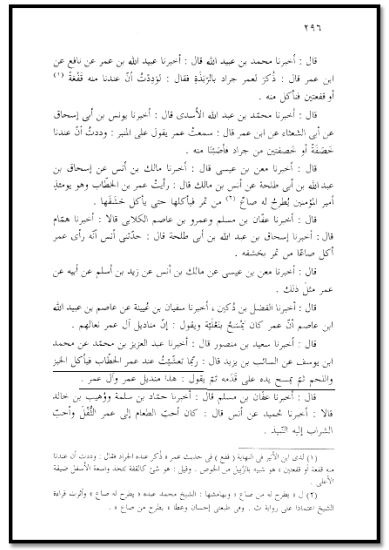 ٢٩٦
قال : أخبرنا محمد بن عبيد الله قال : أخبرنا عبيد الله بن عمر عن نافع عن
ابن عمر قال : ذُكرَ لعمر جراد بالرَّبَذَة فقال : لَوَدِدْتُ أنَّ عندنا منه قَفْعَةً (١)
أو قفعتين فنأكل منه .
قال : أخبرنا محمّد بن عبد الله الأسدى قال : أخبرنا يونس بن أبى إسحاق
عن أبى الشعثاء عن ابن عمر قال : سمعتُ عمر يقول على المنبر : وددتُ أنّ عندنا
خَصَفَةً أو خَصفتين من جراد فأصَبْنَا منه .
قال : أخبرنا معن بن عيسى قال : أخبرنا مالك بن أنس عن إسحاق بن
عبد الله بن أبى طلحة عن أنس بن مالك قال : رأيتُ عمر بن الخطّاب وهو يومئذٍ
أمير المؤمنين يُطرحُ له صاعٌ (٢) من تمر فيأكلها حتى يأكل حَشَفَها .
قال : أخبرنا عفّان بن مسلم وعمرو بن عاصم الكلابى قالا : أخبرنا همّام
قال : أخبرنا إسحاق بن عبد الله بن أبى طلحة قال : حدّثنى أنس أنّه رأى عمر
أكل صاعًا من تمر بحَشفه .
قال : أخبرنا معن بن عيسى عن مالك بن أنس عن زيد بن أسلم عن أبيه عن
عمر مثلَ ذلك .
قال : أخبرنا الفضل بن دُكين ، أخبرنا سفيان بن عُيينة عن عاصم بن عبيد الله
ابن عاصم أنّ عمر كان يُمْسَحُ بنَعْلَيْهِ ويقول : إنّ مناديل آل عمر نعالهم .
قال : أخبرنا سعيد بن منصور قال : أخبرنا عبد العزيز بن محمد عن محمد
ابن يوسف عن السائب بن يزيد قال : ربّما تعشَّيْتُ عند عمر الخطّاب فيأكل الخبز
واللحم ثمّ يمسح يده على قَدَمه ثمّ يقول : هذا منديل عمر وآل عمر .
قال : أخبرنا عفّان بن مسلم قال : أخبرنا حمّاد بن سلمة ووُهيب بن خالد
قالا : أخبرنا حُميد عن أنس قال : كان أحبّ الطعام إلى عمر الثُّفْلُ وأحبّ
الشراب إليه النّبيذ .
(١) لدى ابن الأثير فى النهاية ( قفع ) فى حديث عمر « ذُكر عنده الجراد فقال : وددت أن عندنا
منه قفعة أو قفعتين » هو شبيه بالزَّبيل من الخوص . وقيل : هو شئ كالقفة تتخذ واسعة الأسفل ضيقة
الأعلى .
(٢) ل « يطرح له من صاع » وبهامشها : الشيخ محمد عبده « يطرح له صاع » وآثرت قراءة
الشيخ اعتمادا على رواية ث . وفى طبعتى إحسان وعطا « يطرح له من صاع » .